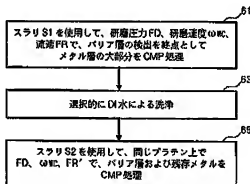 61
スラリS1を使用して、研磨圧力FD、研磨速度ωwc、
流速FRで、バリア層の検出を終点として
メタル層の大部分をCMP処理
63
選択的にDI水による洗浄
65
スラリS2を使用して、同じプラテン上で
FD、ωwc、FR'で、バリア層および残存メタルを
CMP処理